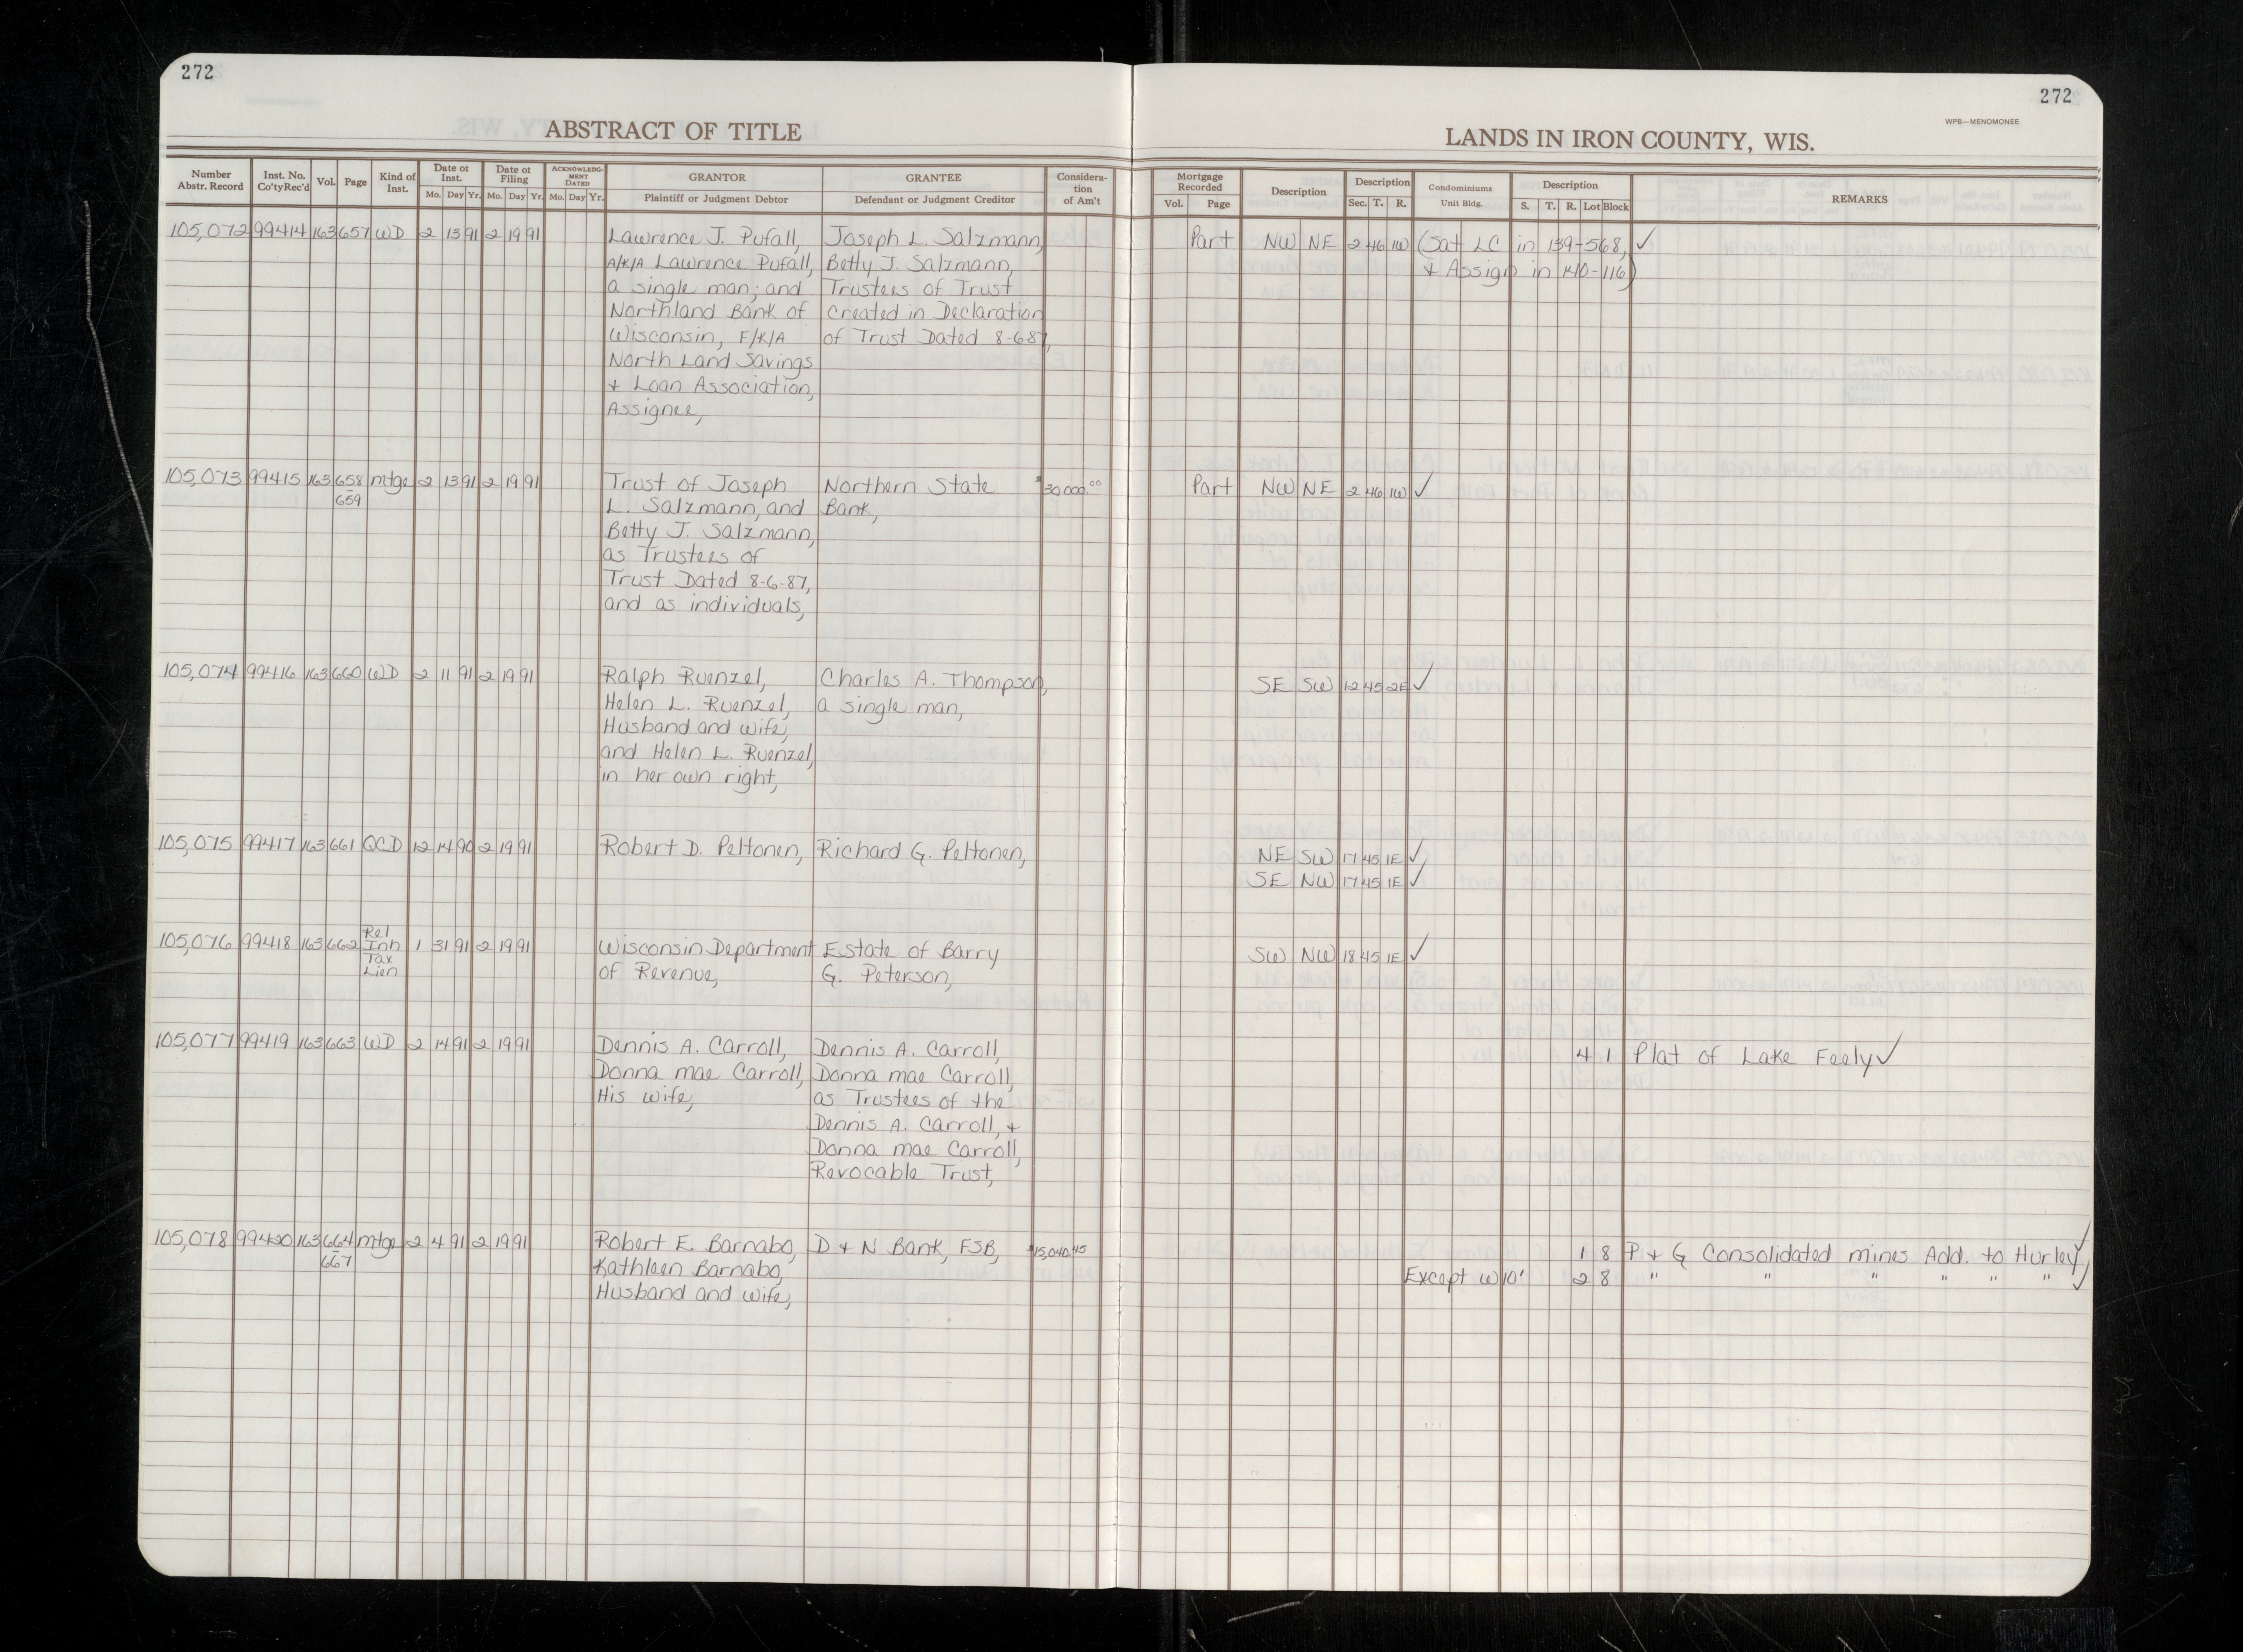 272
272
ABSTRACT OF TITLE
LANDS IN IRON COUNTY, WIS.
WPB—MENOMONEE
Number Abstr. Record Inst. No. Co'ty Rec'd Vol. Page Kind of Inst. Date of Inst. Mo. Day Yr. Date of Filing Mo. Day Yr. ACKNOWLEDGMENT DATED Mo. Day Yr. GRANTOR Plaintiff or Judgment Debtor GRANTEE Defendant or Judgment Creditor Consideration of Am't
Mortgage Recorded Vol. Page Description Description Sec. T. R. Condominiums Unit Bldg. Description S. T. R. Lot Block REMARKS
105,072 99414 163 657 WD 2 13 91 2 19 91 Lawrence J. Pufall, Joseph L. Salzmann, Part NW NE 2 46 1W (Sat LC in 139-568, ✓
A/K/A Lawrence Pufall, Betty J. Salzmann, + Assign in 140-116)
a single man; and Trustees of Trust
Northland Bank of created in Declaration
Wisconsin, F/K/A of Trust Dated 8-6-87,
North Land Savings
+ Loan Association,
Assignee,
105,073 99415 163 658 mtge 2 13 91 2 19 91 Trust of Joseph Northern State $30000.00 Part NW NE 2 46 1W ✓
659 L. Salzmann, and Bank,
Betty J. Salzmann,
as Trustees of
Trust Dated 8-6-87,
and as individuals,
105,074 99416 163 660 WD 2 11 91 2 19 91 Ralph Ruenzel, Charles A. Thompson, SE SW 12 45 2E ✓
Helen L. Ruenzel, a single man,
Husband and wife,
and Helen L. Ruenzel,
in her own right,
105,075 99417 163 661 QCD 12 14 90 2 19 91 Robert D. Peltonen, Richard G. Peltonen, NE SW 17 45 1E ✓
SE NW 17 45 1E ✓
105,076 99418 163 662 Rel Inh Tax Lien 1 31 91 2 19 91 Wisconsin Department Estate of Barry SW NW 18 45 1E ✓
of Revenue, G. Peterson,
105,077 99419 163 663 WD 2 14 91 2 19 91 Dennis A. Carroll, Dennis A. Carroll, 4 1 Plat of Lake Feely ✓
Donna mae Carroll, Donna mae Carroll,
His wife, as Trustees of the
Dennis A. Carroll, +
Donna mae Carroll,
Revocable Trust,
105,078 99420 163 664 mtge 2 4 91 2 19 91 Robert E. Barnabo, D + N Bank, FSB, $15,040.45 1 8 P + G Consolidated mines Add. to Hurley, ✓
667 Kathleen Barnabo, Except W 10' 2 8 " " " " " " ✓
Husband and wife,